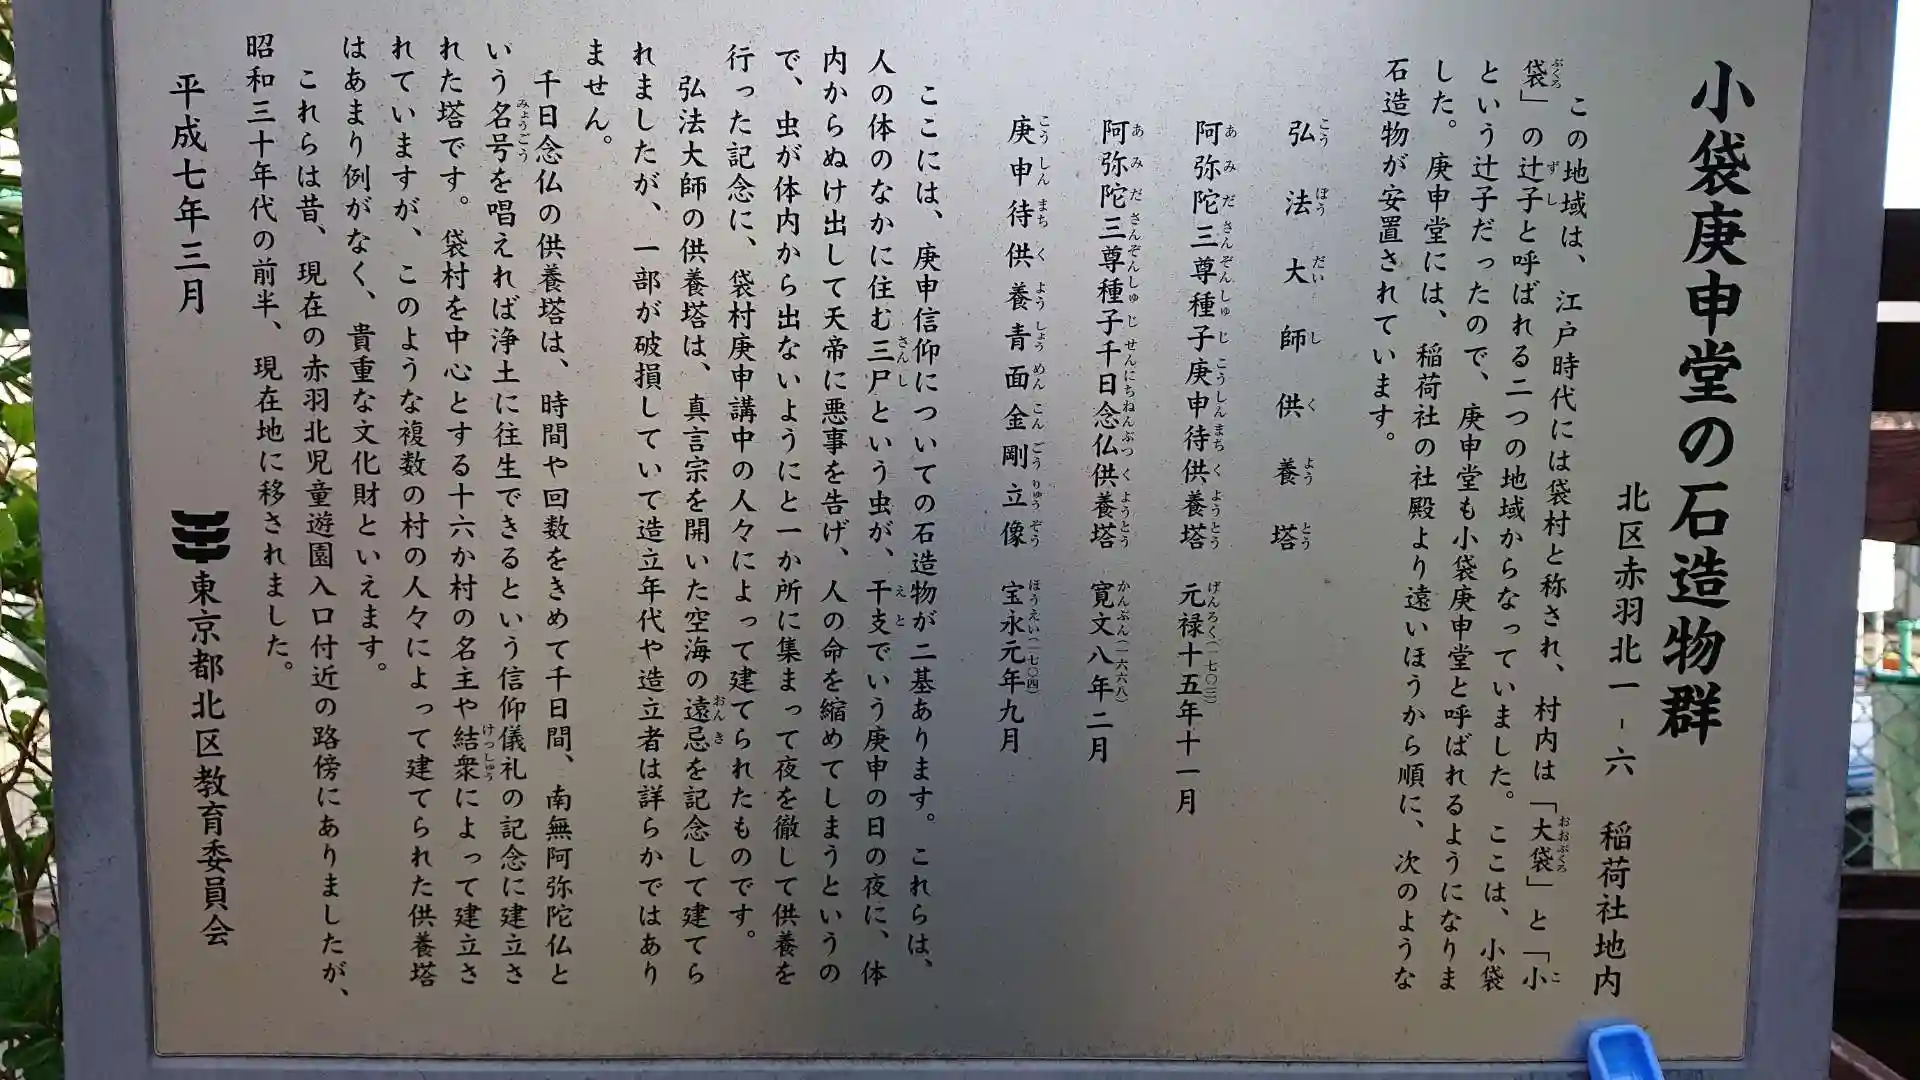 小袋庚申堂の石造物群
北区赤羽北一-六　稲荷社地内
この地域は、江戸時代には袋村と称され、村内は「大袋」と「小
袋」の辻子と呼ばれる二つの地域からなっていました。ここは、小袋
という辻子だったので、庚申堂も小袋庚申堂と呼ばれるようになりま
した。庚申堂には、稲荷社の社殿より遠いほうから順に、次のような
石造物が安置されています。
弘法大師供養塔
阿弥陀三尊種子庚申待供養塔　元禄十五年(一七〇三)十一月
阿弥陀三尊種子千日念仏供養塔　寛文八年(一六六八)二月
庚申待供養青面金剛立像　宝永元年(一七〇四)九月
ここには、庚申信仰についての石造物が二基あります。これらは、
人の体のなかに住む三尸という虫が、干支でいう庚申の日の夜に、体
内からぬけ出して天帝に悪事を告げ、人の命を縮めてしまうというの
で、虫が体内から出ないようにと一か所に集まって夜を徹して供養を
行った記念に、袋村庚申講中の人々によって建てられたものです。
弘法大師の供養塔は、真言宗を開いた空海の遠忌を記念して建てら
れましたが、一部が破損していて造立年代や造立者は詳らかではあり
ません。
千日念仏の供養塔は、時間や回数をきめて千日間、南無阿弥陀仏と
いう名号を唱えれば浄土に往生できるという信仰儀礼の記念に建立さ
れた塔です。袋村を中心とする十六か村の名主や結衆によって建立さ
れていますが、このような複数の村の人々によって建てられた供養塔
はあまり例がなく、貴重な文化財といえます。
これらは昔、現在の赤羽北児童遊園入口付近の路傍にありましたが、
昭和三十年代の前半、現在地に移されました。
平成七年三月
東京都北区教育委員会